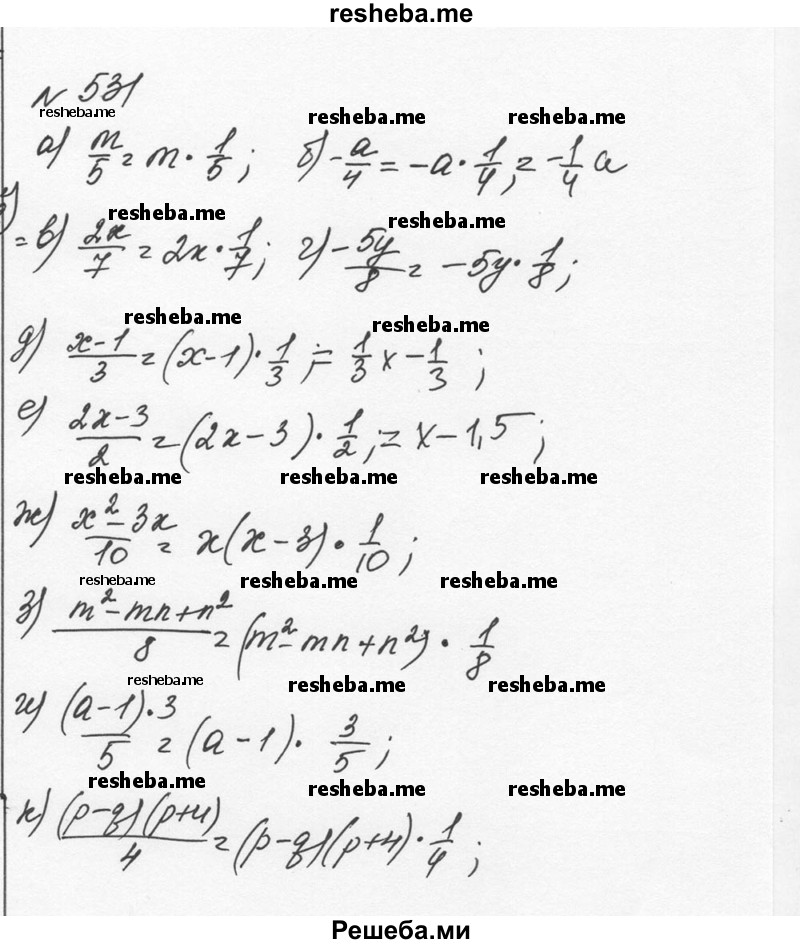 resheba.me
№ 531
resheba.me resheba.me resheba.me
а) m/5 = m · 1/5 ; б) -a/4 = -a · 1/4 , = -1/4 a
resheba.me resheba.me
= в) 2x/7 = 2x · 1/7 ; г) -5y/8 = -5y · 1/8 ;
resheba.me resheba.me
д) x-1/3 = (x-1) · 1/3 ; = 1/3 x - 1/3 ;
е) 2x-3/2 = (2x-3) · 1/2 ; = x - 1,5 ;
resheba.me resheba.me resheba.me
ж) x²-3x/10 = x(x-3) · 1/10 ;
resheba.me resheba.me resheba.me
з) m²-mn+n²/8 = (m²-mn+n²) · 1/8
resheba.me resheba.me resheba.me
и) (a-1)·3/5 = (a-1) · 3/5 ;
resheba.me resheba.me resheba.me
к) (p-q)(p+4)/4 = (p-q)(p+4) · 1/4 ;
Решеба.ми